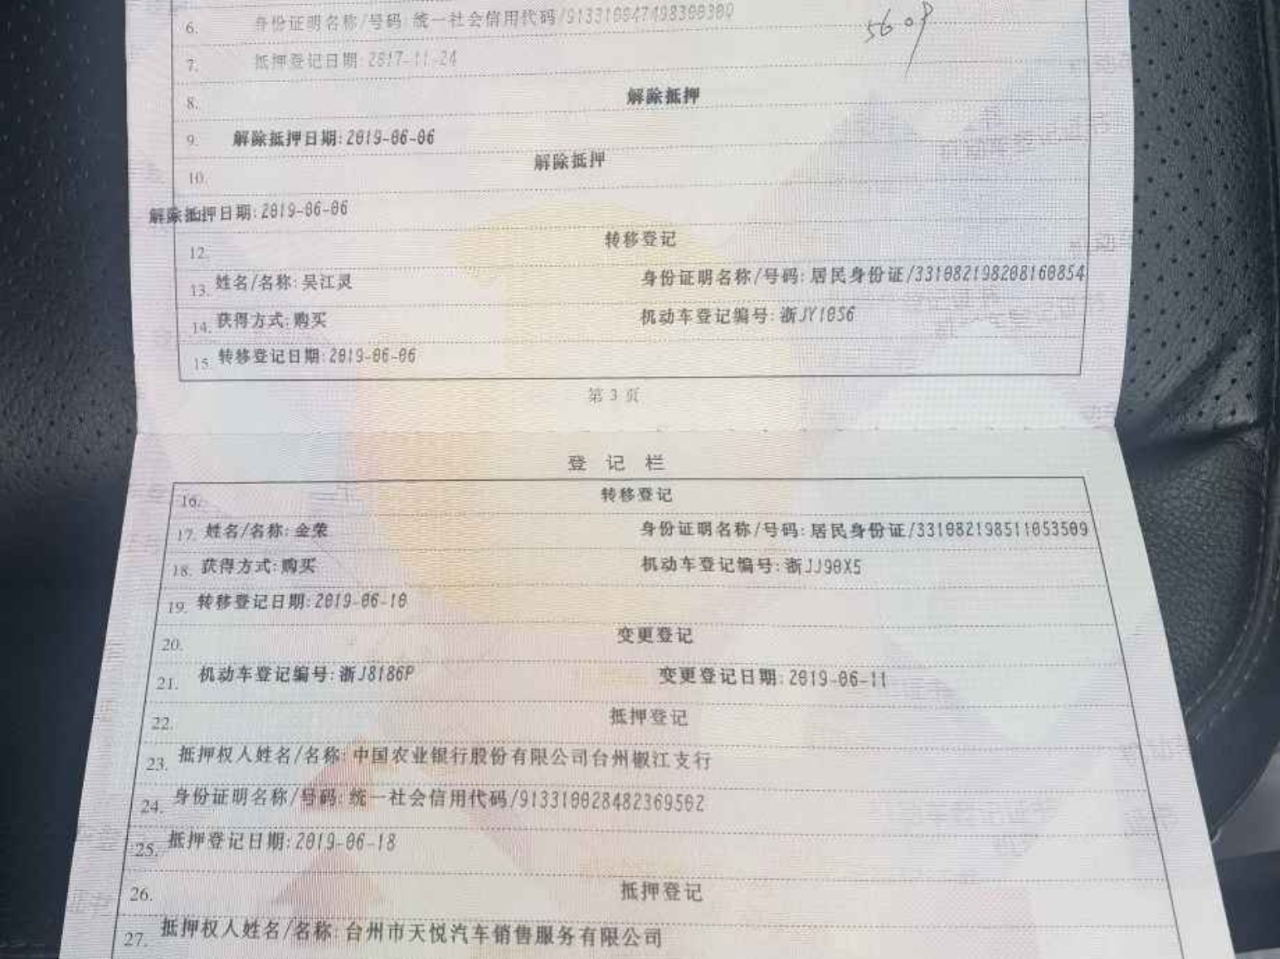 6. 身份证明名称/号码: 统一社会信用代码/
5609
7. 抵押登记日期: 2017-11-24
8. 解除抵押
9. 解除抵押日期:2019-06-06
10. 解除抵押
解除抵押日期:2019-06-06
12. 转移登记
13. 姓名/名称: 吴江灵 身份证明名称/号码: 居民身份证/331082198208160854
14. 获得方式:购买 机动车登记编号: 浙JY10S6
15. 转移登记日期:2019-06-06
第 3 页
登 记 栏
16. 转移登记
17. 姓名/名称: 金荣 身份证明名称/号码: 居民身份证/331082198511053509
18. 获得方式:购买 机动车登记编号:浙JJ90X5
19. 转移登记日期:2019-06-10
20. 变更登记
21. 机动车登记编号:浙J8186P 变更登记日期:2019-06-11
22. 抵押登记
23. 抵押权人姓名/名称: 中国农业银行股份有限公司台州椒江支行
24. 身份证明名称/号码: 统一社会信用代码/913310028482369502
25. 抵押登记日期:2019-06-18
26. 抵押登记
27. 抵押权人姓名/名称: 台州市天悦汽车销售服务有限公司